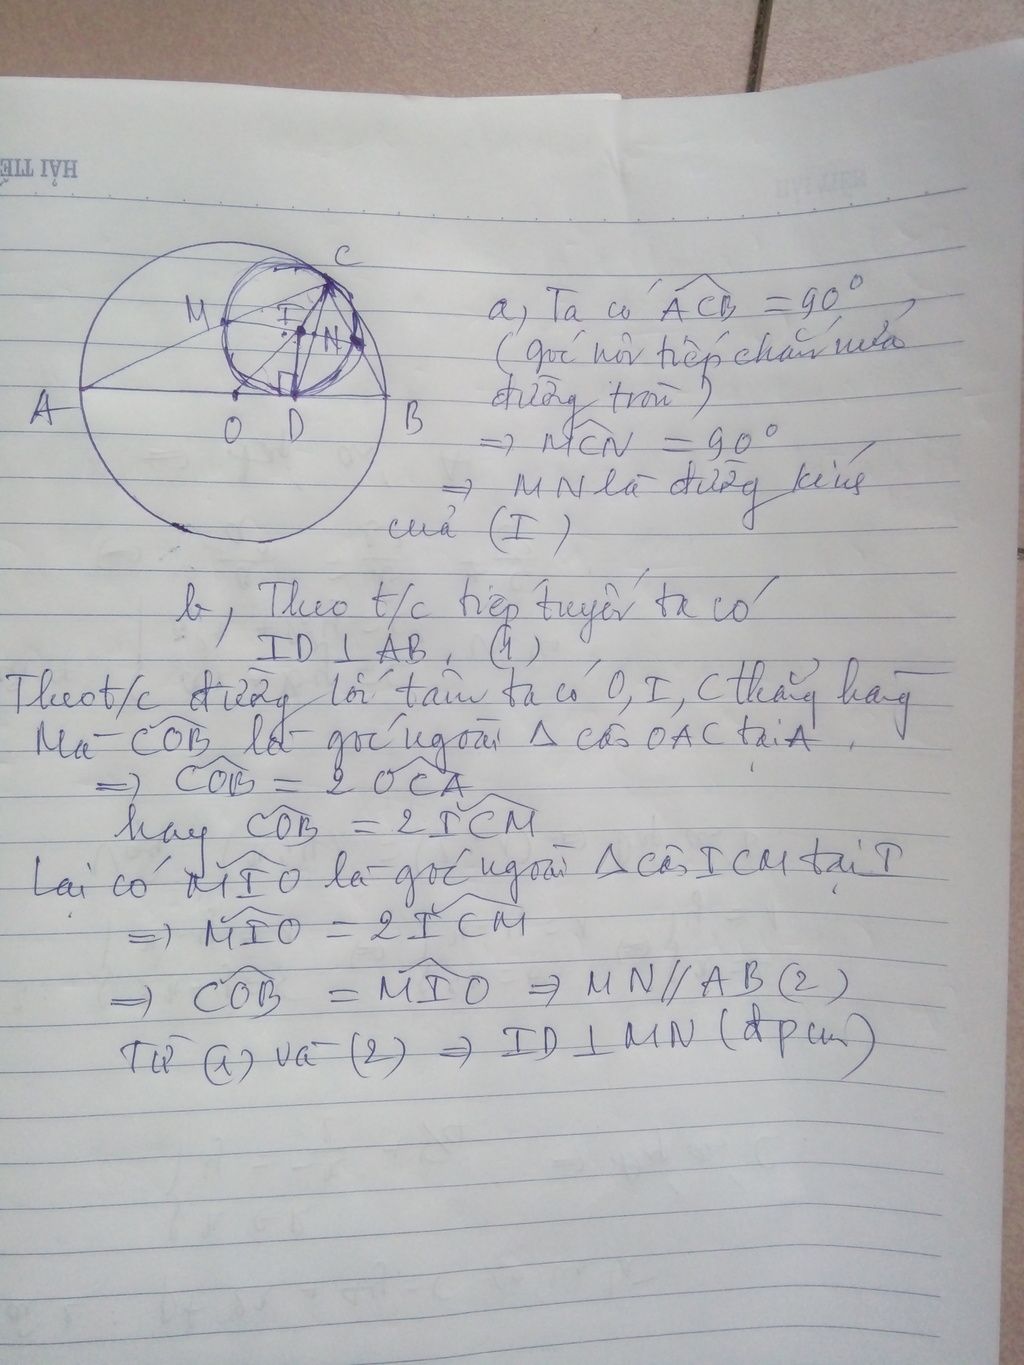 HẢI TIẾ
C
M
I
N
A
O
D
B
a, Ta có ACB = 90°
(góc nội tiếp chắn nửa
đường tròn)
=> MCN = 90°
=> MN là đường kính
của (I)
b, Theo t/c tiếp tuyến ta có
ID ⊥ AB. (1)
Theo t/c đường nối tâm ta có O, I, C thẳng hàng
Mà COB là góc ngoài Δ cân OAC tại A.
=> COB = 2 OCA
hay COB = 2 ICM
Lại có MIO là góc ngoài Δ cân ICM tại I
=> MIO = 2 ICM
=> COB = MIO => MN // AB (2)
Từ (1) và (2) => ID ⊥ MN (đpcm)